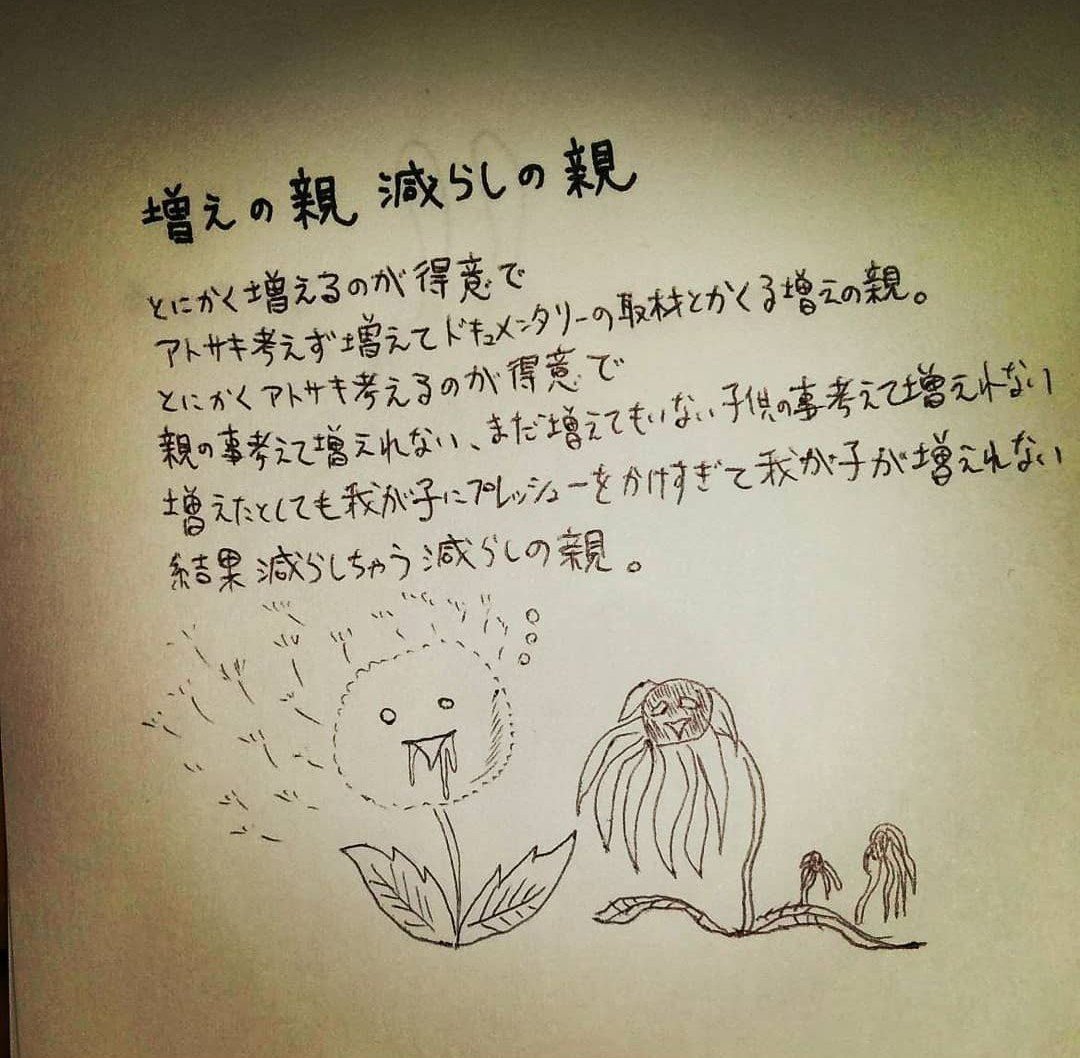 増えの親 減らしの親
とにかく増えるのが得意で
アトサキ考えず増えてドキュメンタリーの取材とかくる増えの親。
とにかくアトサキ考えるのが得意で
親の事考えて増えれない、まだ増えてもいない子供の事考えて増えれない
増えたとしても我が子にプレッシューをかけすぎて我が子が増えれない
結果減らしちゃう減らしの親。